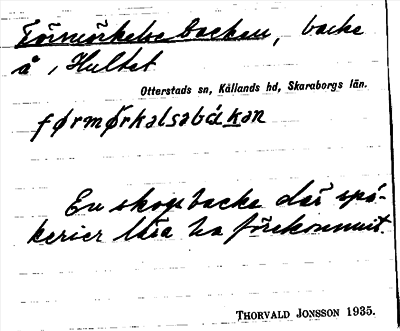 Förmörkelsebacken, backe
å, Hultet
Otterstads sn, Kållands hd, Skaraborgs län.
førmørkalsabákan
En skogsbacke där spö-
kerier lära ha förekommit.
THORVALD JONSSON 1935.